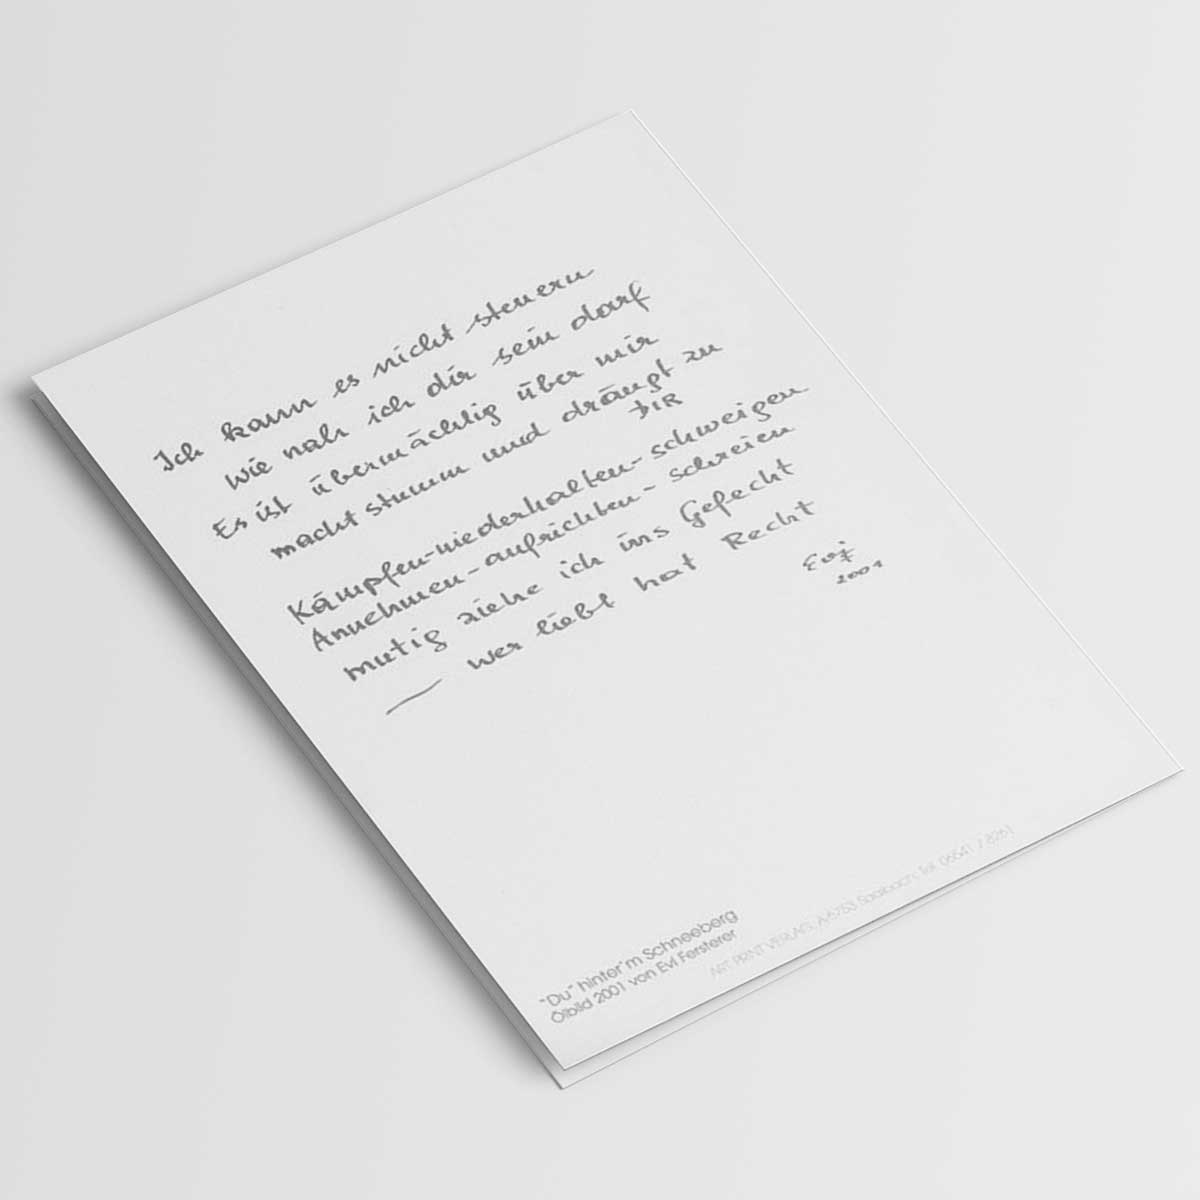 Ich kann es nicht steuern
wie nah ich dir sein darf
Es ist übermächtig über mir
macht stumm und drängt zu
DIR
Kämpfen-niederhalten-schweigen
Annehmen-aufrichten-schreien
mutig ziehe ich ins Gefecht
— wer liebt hat Recht
Evi
2001
"Du" hinter'm Schneeberg
Ölbild 2001 von Evi Fersterer
ART PRINT VERLAG, A-5753 Saalbach, Tel. 06541 / 8261